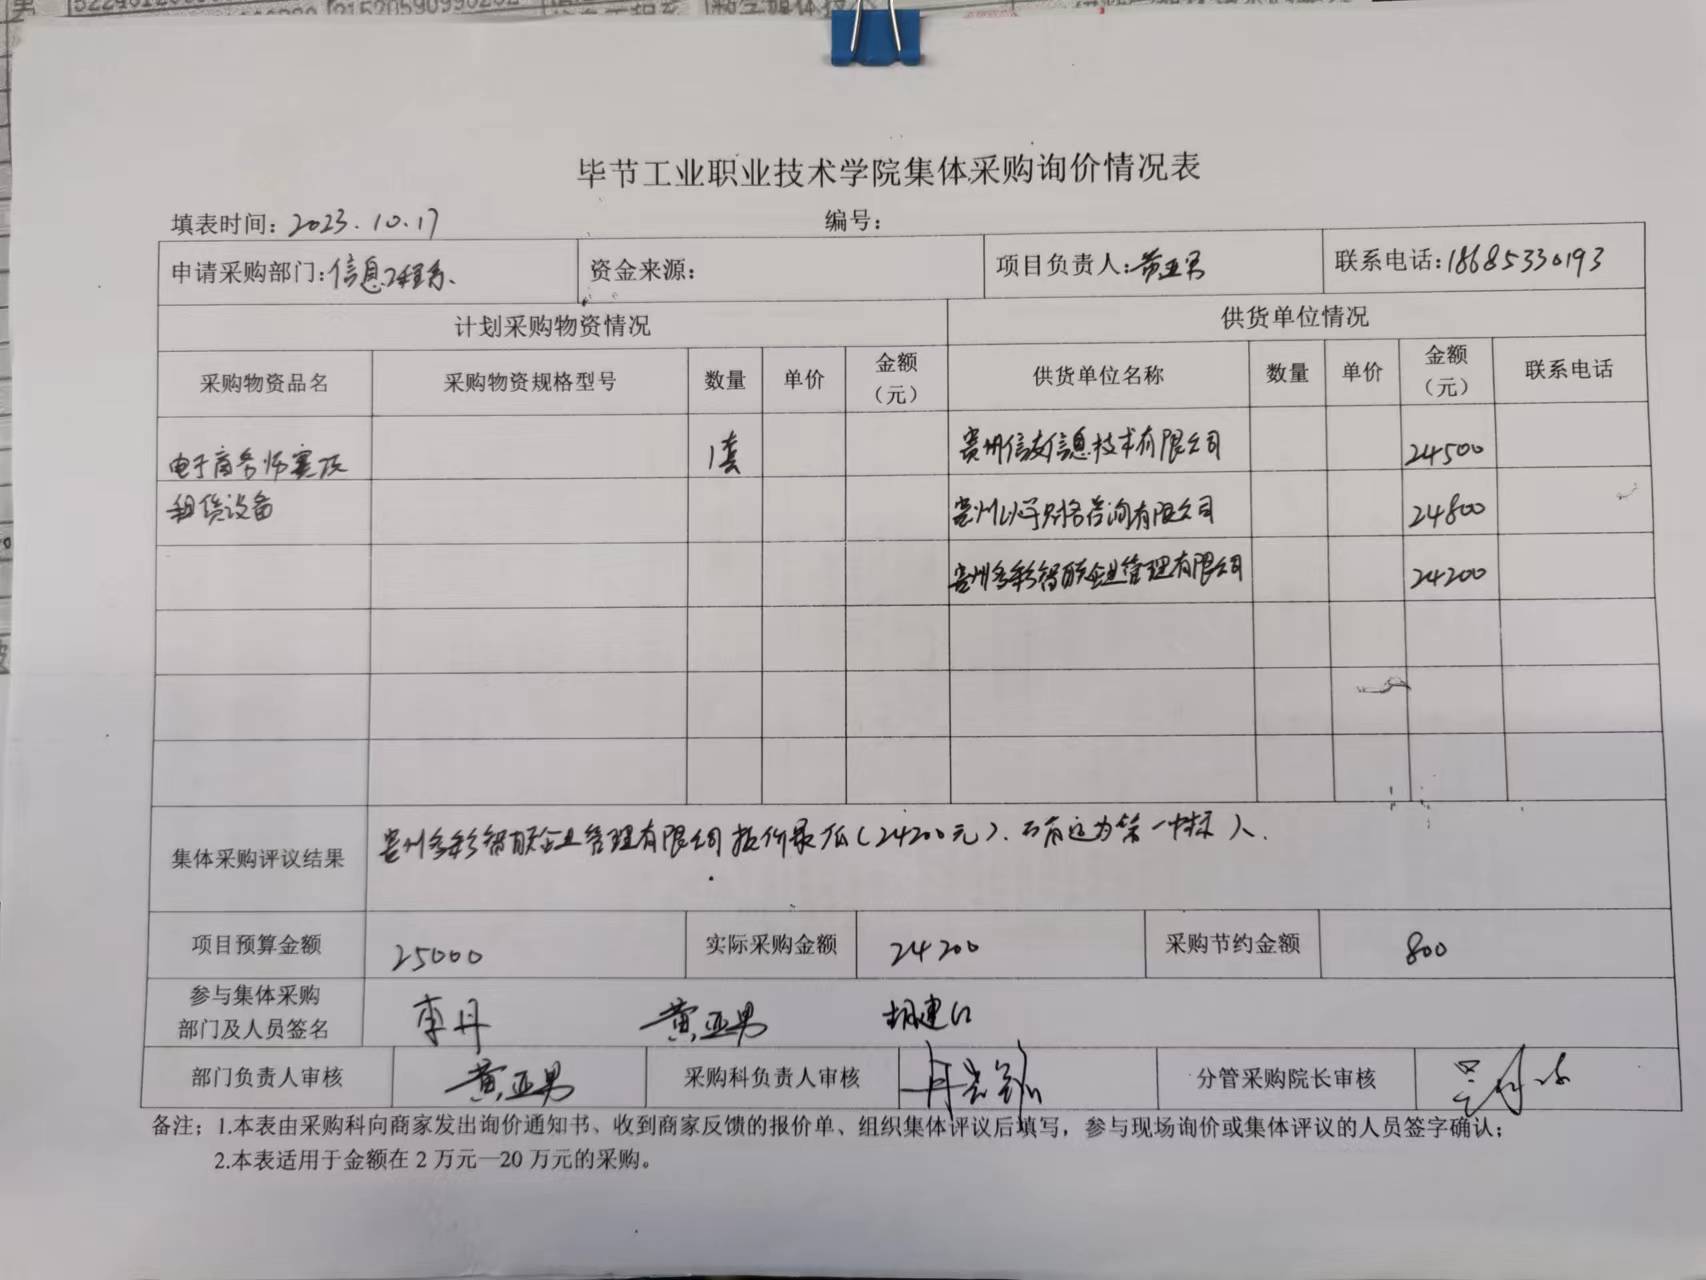 毕节工业职业技术学院集体采购询价情况表
填表时间: 2023.10.17 编号:
申请采购部门:信息工程系 资金来源: 项目负责人:黄亚男 联系电话:18685330193
计划采购物资情况 供货单位情况
采购物资品名 采购物资规格型号 数量 单价 金额（元） 供货单位名称 数量 单价 金额（元） 联系电话
电子商务师赛项 1套 贵州信友信息技术有限公司 24500
租赁设备 贵州 财务咨询有限公司 24800
贵州多彩智联企业管理有限公司 24200
集体采购评议结果 贵州多彩智联企业管理有限公司报价最低(24200元). 为第一中标人.
项目预算金额 25000 实际采购金额 24200 采购节约金额 800
参与集体采购 李丹 黄亚男 胡建
部门及人员签名
部门负责人审核 黄亚男 采购科负责人审核 分管采购院长审核
备注; 1.本表由采购科向商家发出询价通知书、收到商家反馈的报价单、组织集体评议后填写，参与现场询价或集体评议的人员签字确认;
2.本表适用于金额在 2 万元—20 万元的采购。